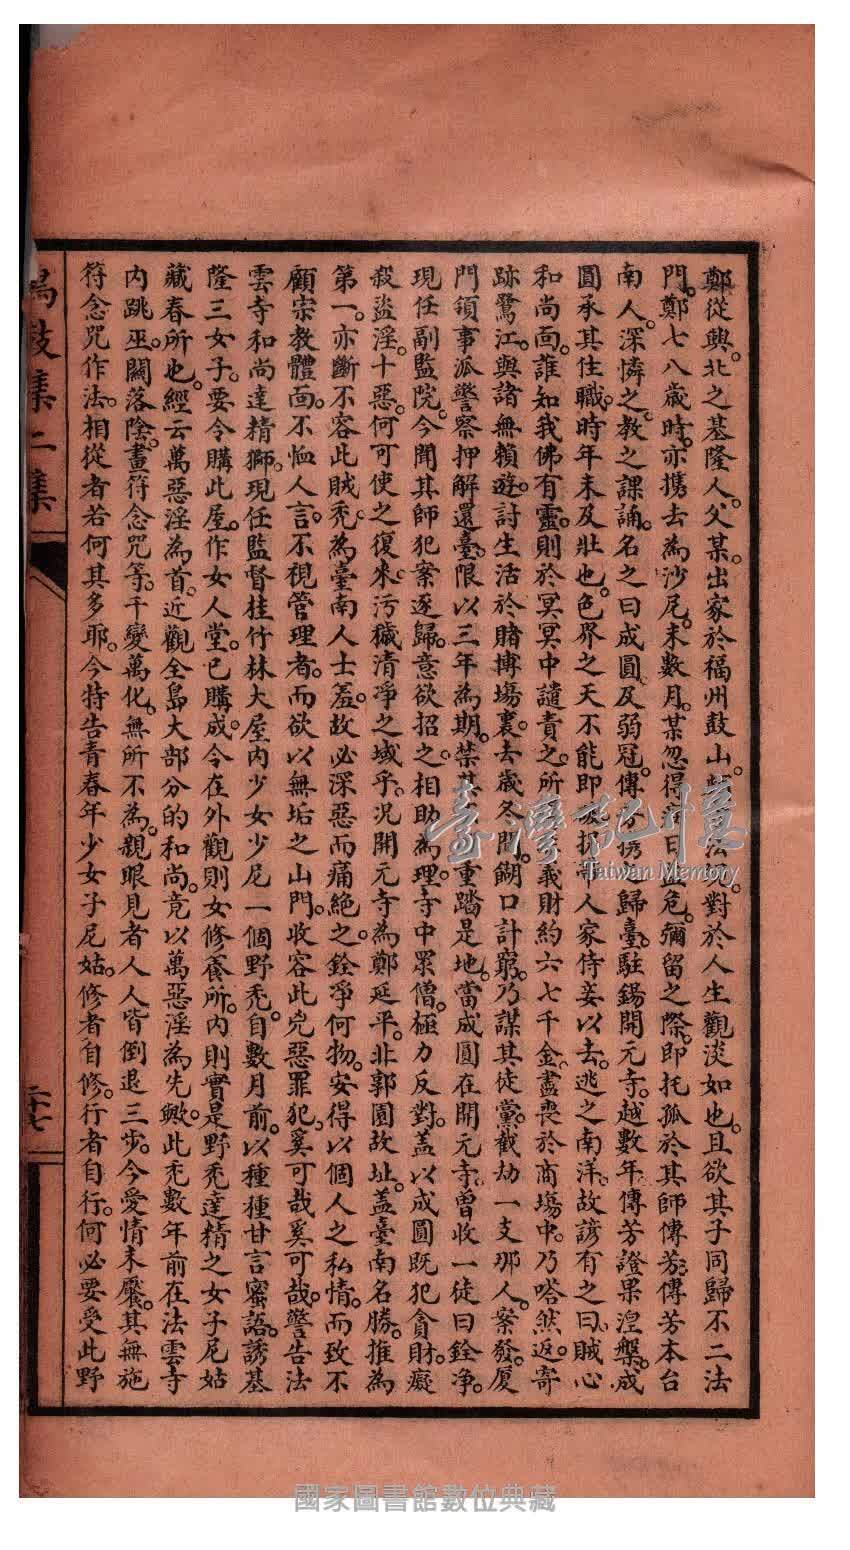 鄭從興。北之基隆人。父某。出家於福州鼓山。法現。對於人生觀淡如也。且欲其子同歸不二法
門。鄭七八歲時。亦携去為沙尼。未數月。某忽得病。日益危。彌留之際。即托孤於其師傳芳。傳芳本台
南人。深憐之。教之課誦。名之曰成圓。及弱冠。傳芳携之歸臺。駐錫開元寺。越數年。傳芳證果湼槃。成
圓承其住職。時年未及壯也。色界之天不能即破。拐帶人家侍妾以去。逃之南洋。故諺有之曰。賊心
和尚面。誰知我佛有靈。則於冥冥中譴責之。所義財約六七千金。盡喪於商場中。乃嗒然。返寄
跡鷺江。與諸無賴遊。討生活於賭博場裏。去歲冬間。餬口計窮。乃謀其徒黨。截劫一支那人。案發。厦
門領事派警察押解還臺。限以三年為期。禁其重踏是地。當成圓在開元寺。曾收一徒曰銓净。
現任副監院。今聞其師犯案逐歸。意欲招之。相助為理。寺中眾僧。極力反對。蓋以成圓既犯貪財。癡
殺盜淫。十惡。何可使之復來。污穢清凈之域乎。况開元寺為鄭延平。北郭園故址。蓋臺南名勝。推為
第一。亦斷不容此賊禿。為臺南人士羞。故必深惡而痛絕之。銓凈何物。安得以個人之私情。而致不
顧宗教體面。不恤人言。不視管理者。而欲以無垢之山門。收容此兇惡罪犯。奚可哉。奚可哉。警告法
雲寺和尚達精獅。現任監督桂竹林大屋內少女少尼一個野禿。自數月前。以種種甘言蜜語。誘基
隆三女子。要令購此屋。作女人堂。已購成。今在外觀則女修養所。內則實是野禿達精之女子尼姑
藏春所也。經云萬惡淫為首。近觀全島大部分的和尚。竟以萬惡淫為先歟。此禿數年前在法雲寺
內跳巫。關落陰。畫符念咒等。千變萬化。無所不為。親眼見者人人皆倒退三步。今愛情未饜。其無施
符念咒作法。相從者若何其多耶。今特告青春年少女子尼姑。修者自修。行者自行。何必要受此野
鳴鼓集二集
二十七
臺灣記憶
Taiwan Memory
國家圖書館數位典藏